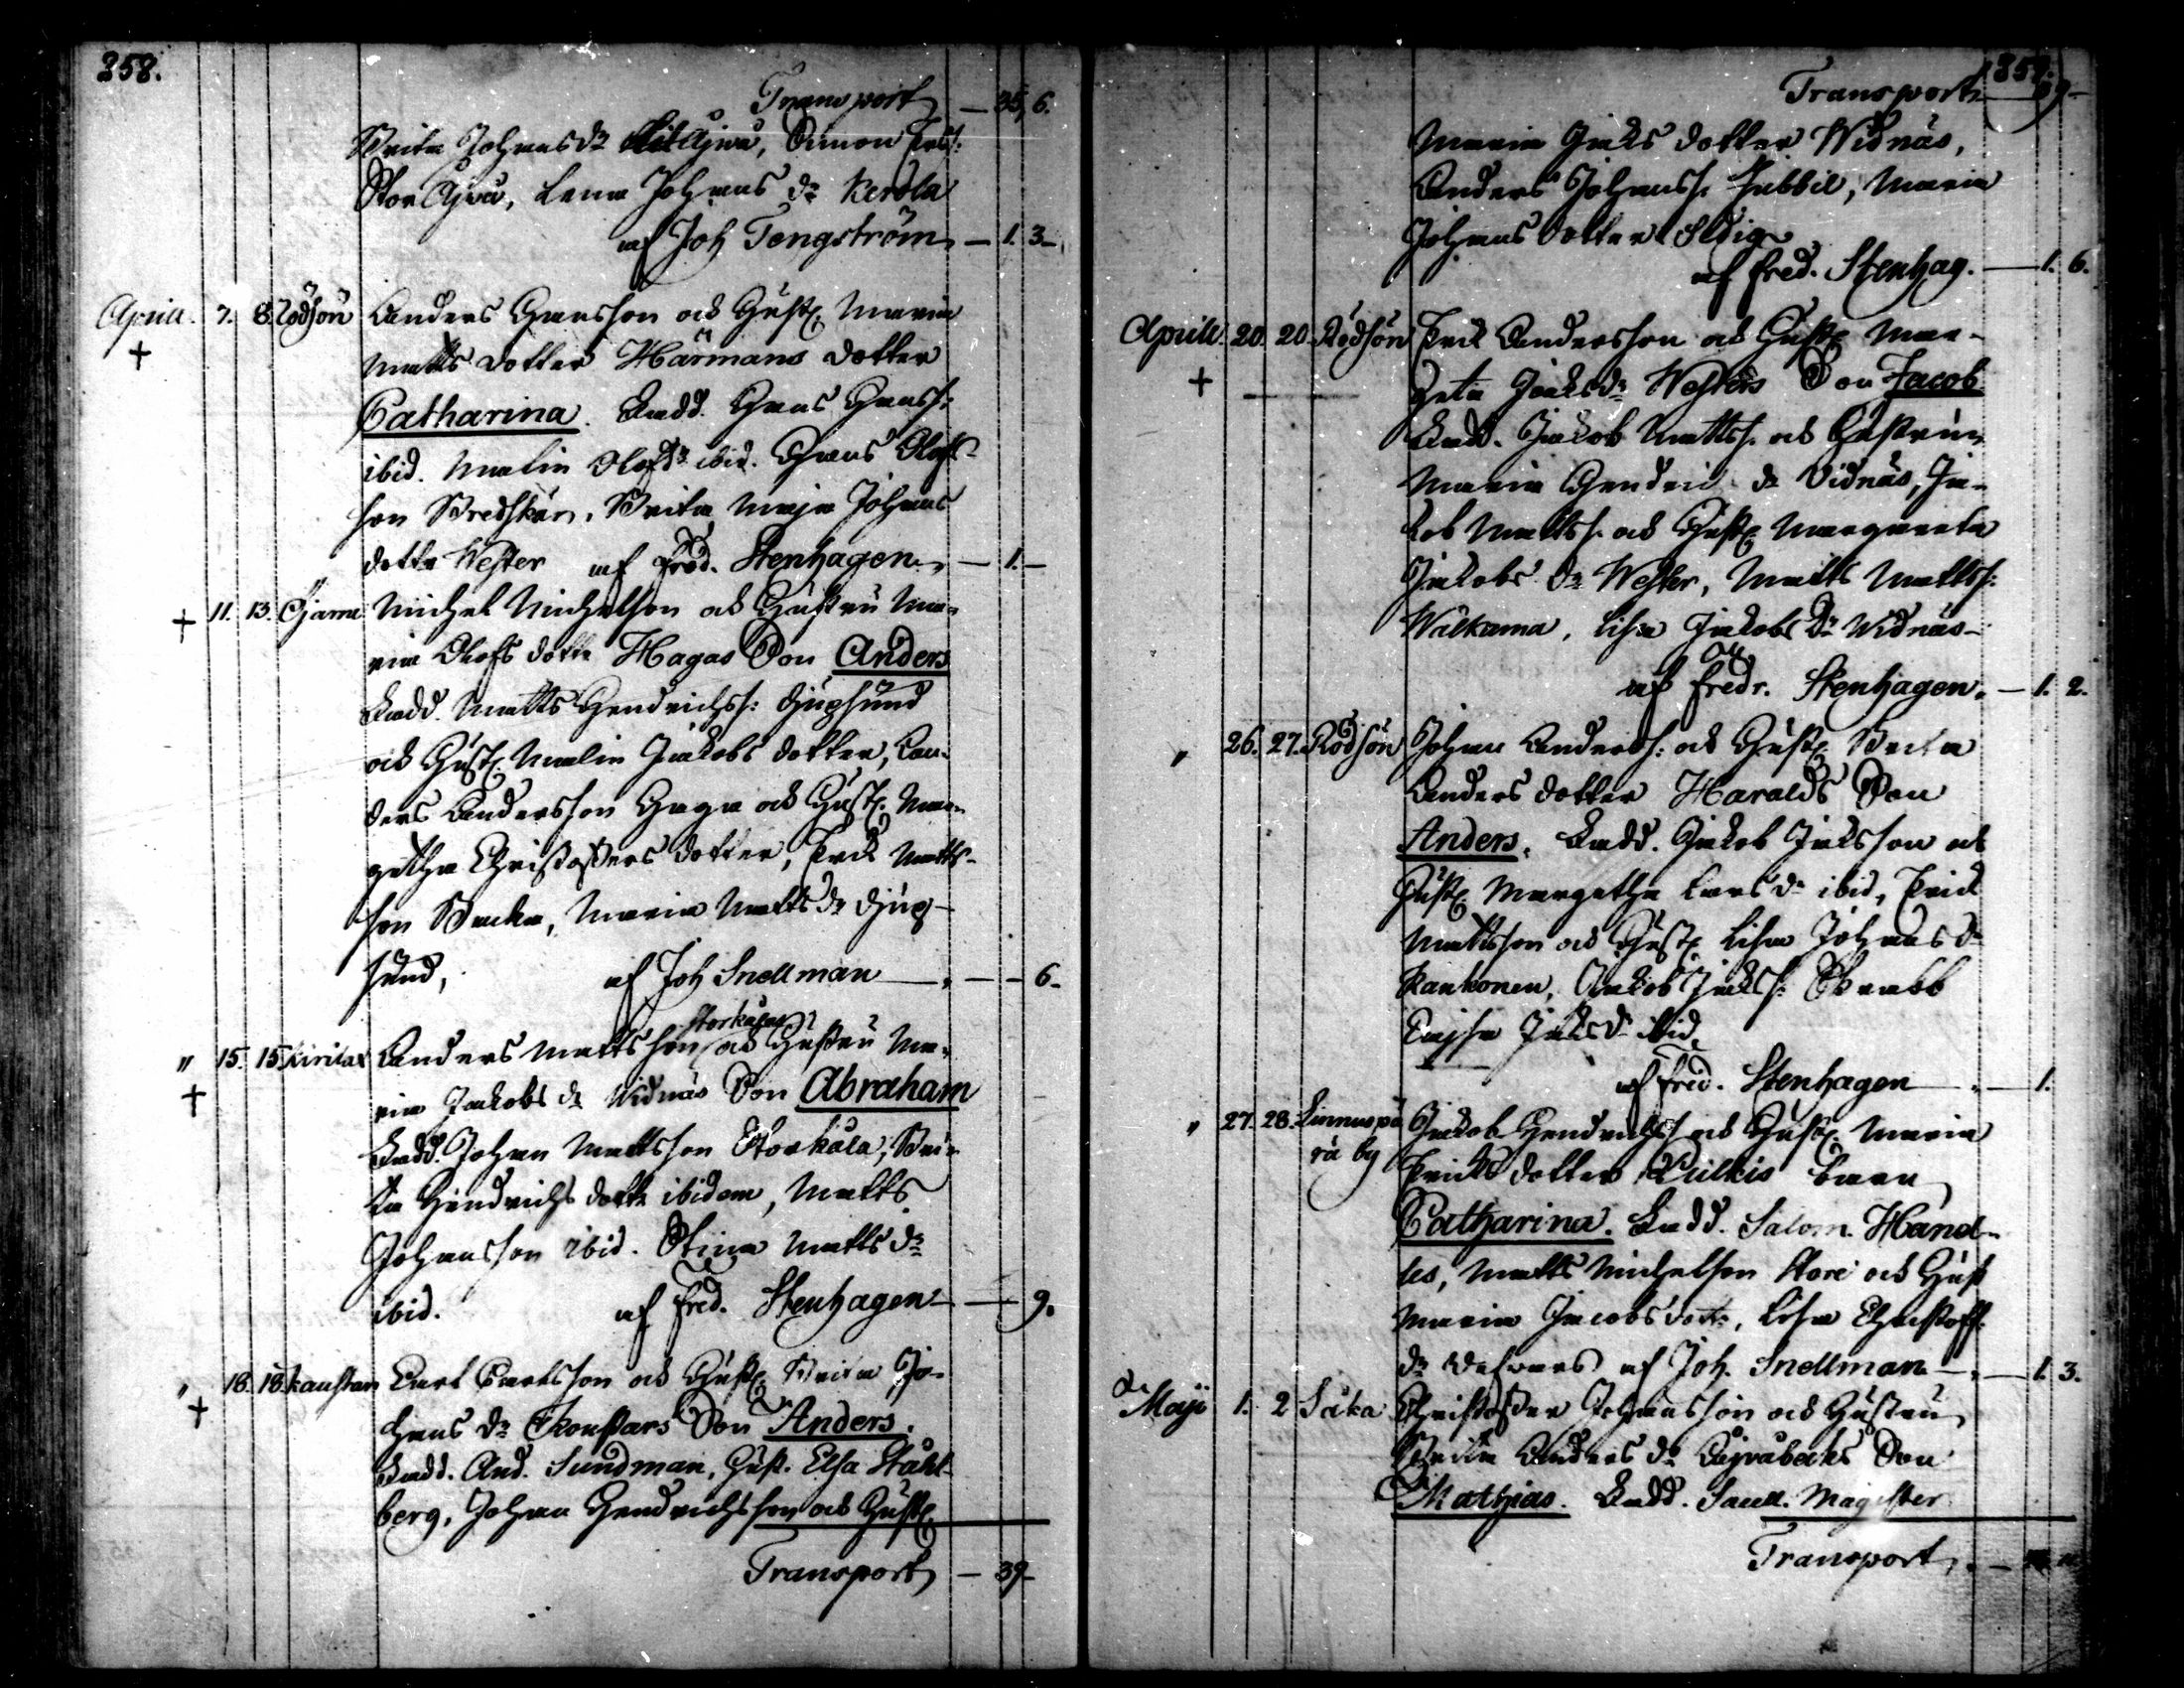 358.
Transport — 35, 6.
Brita Johans dr LillÅjwa, Simon Erss:
StorÅjwa, Lena Johans dr Kerola
af Joh Tengström — 1. 3 —
Aprill. 7. 8. Rödsön Anders Hansson och Hustr. Maria
+ Matts dotter Härmans dotter
Catharina. Fadd. Hans Hanss:
ibid. Malin Olofs dr ibid. Hans Olofs-
son Bredskär, Brita Maja Johans
dotter Wester af Fred. Stenhagen — 1. —
+ 11. 13. Gjarne Michel Michelson och Hustru Ma-
ria Olofs dotter Hagas Son Anders
Fadd. Matts Hendrichss: Djupsund
och Hustr. Malin Jacobs dotter, An-
ders Andersson Haga och Hustr. Mar-
getha Christofers dotter, Erik Matts-
son Backa, Maria Matts dr Djup-
sund, af Joh Snellman — 6.
Storkåla
" 15. 15. Kirilax Anders Mattsson och Hustru Ma-
+ ria Jacobs dr Widnäs Son Abraham
Fadd. Johan Mattsson Storkåla, Bri-
ta Hindrichs dotter ibidem, Matts
Johansson ibid. Stina Matts dr
ibid. af Fred. Stenhagen — 9.
" 18. 18. Kaustar Carl Carlsson och Hustr. Brita Jo-
+ hans dr Skonstars Son Anders.
Fadd. And. Sundman, Hust. Elsa Ståhl-
berg, Johan Hendrichsson och Hustr.
Transport — 39 —
359.
Transport — 39 —
Maria Jacks dotter Widnäs,
Anders Johanss. Hubbil, Maria
Johans dotter
af Fred. Stenhag. — 1. 6.
Aprill. 20. 20. Rödsön Erik Andersson och Hustr. Mar-
+ geta Jacks dr Westers Son Jacob
Fadd. Jakob Mattss. och Hustru
Maria Hendric dr Vidnäs, Ja-
kob Mattss. och Hustr. Margareta
Jakobs dr Wester, Matts Mattss:
Wälkama, Lisa Jakobs dr Widnäs —
af Fredr. Stenhagen. — 1. 2.
" 26. 27. Rödsön Johan Anderss: och Hustr. Brita
Anders dotter Haralds Son
Anders. Fadd. Jakob Jacksson och
Hustr. Margetha Lars dr ibid, Erick
Mattsson och Hustr. Lisa Johans dr
Kankonen, Jakob Jackss: Skrabb
Cajsa Jacks dr ibid,
af Fred. Stenhagen — 1.
" 27. 28. Linnuspä Jakob Hendrichss. och Hustr. Maria
rä by Ericks dotter Kulkis barn
Catharina. Fadd. Salom. Hand-
les, Matts Michelson Stor och Hust
Maria Jacobs dotr, Lisa Christoff.
dr af Joh. Snellman — 1. 3.
Maji 1. 2 Såka Christofer Johansson och Hustru
Brita Anders dr Åjvabacks Son
Mathias. Fadd. Saml. Magister
Transport —